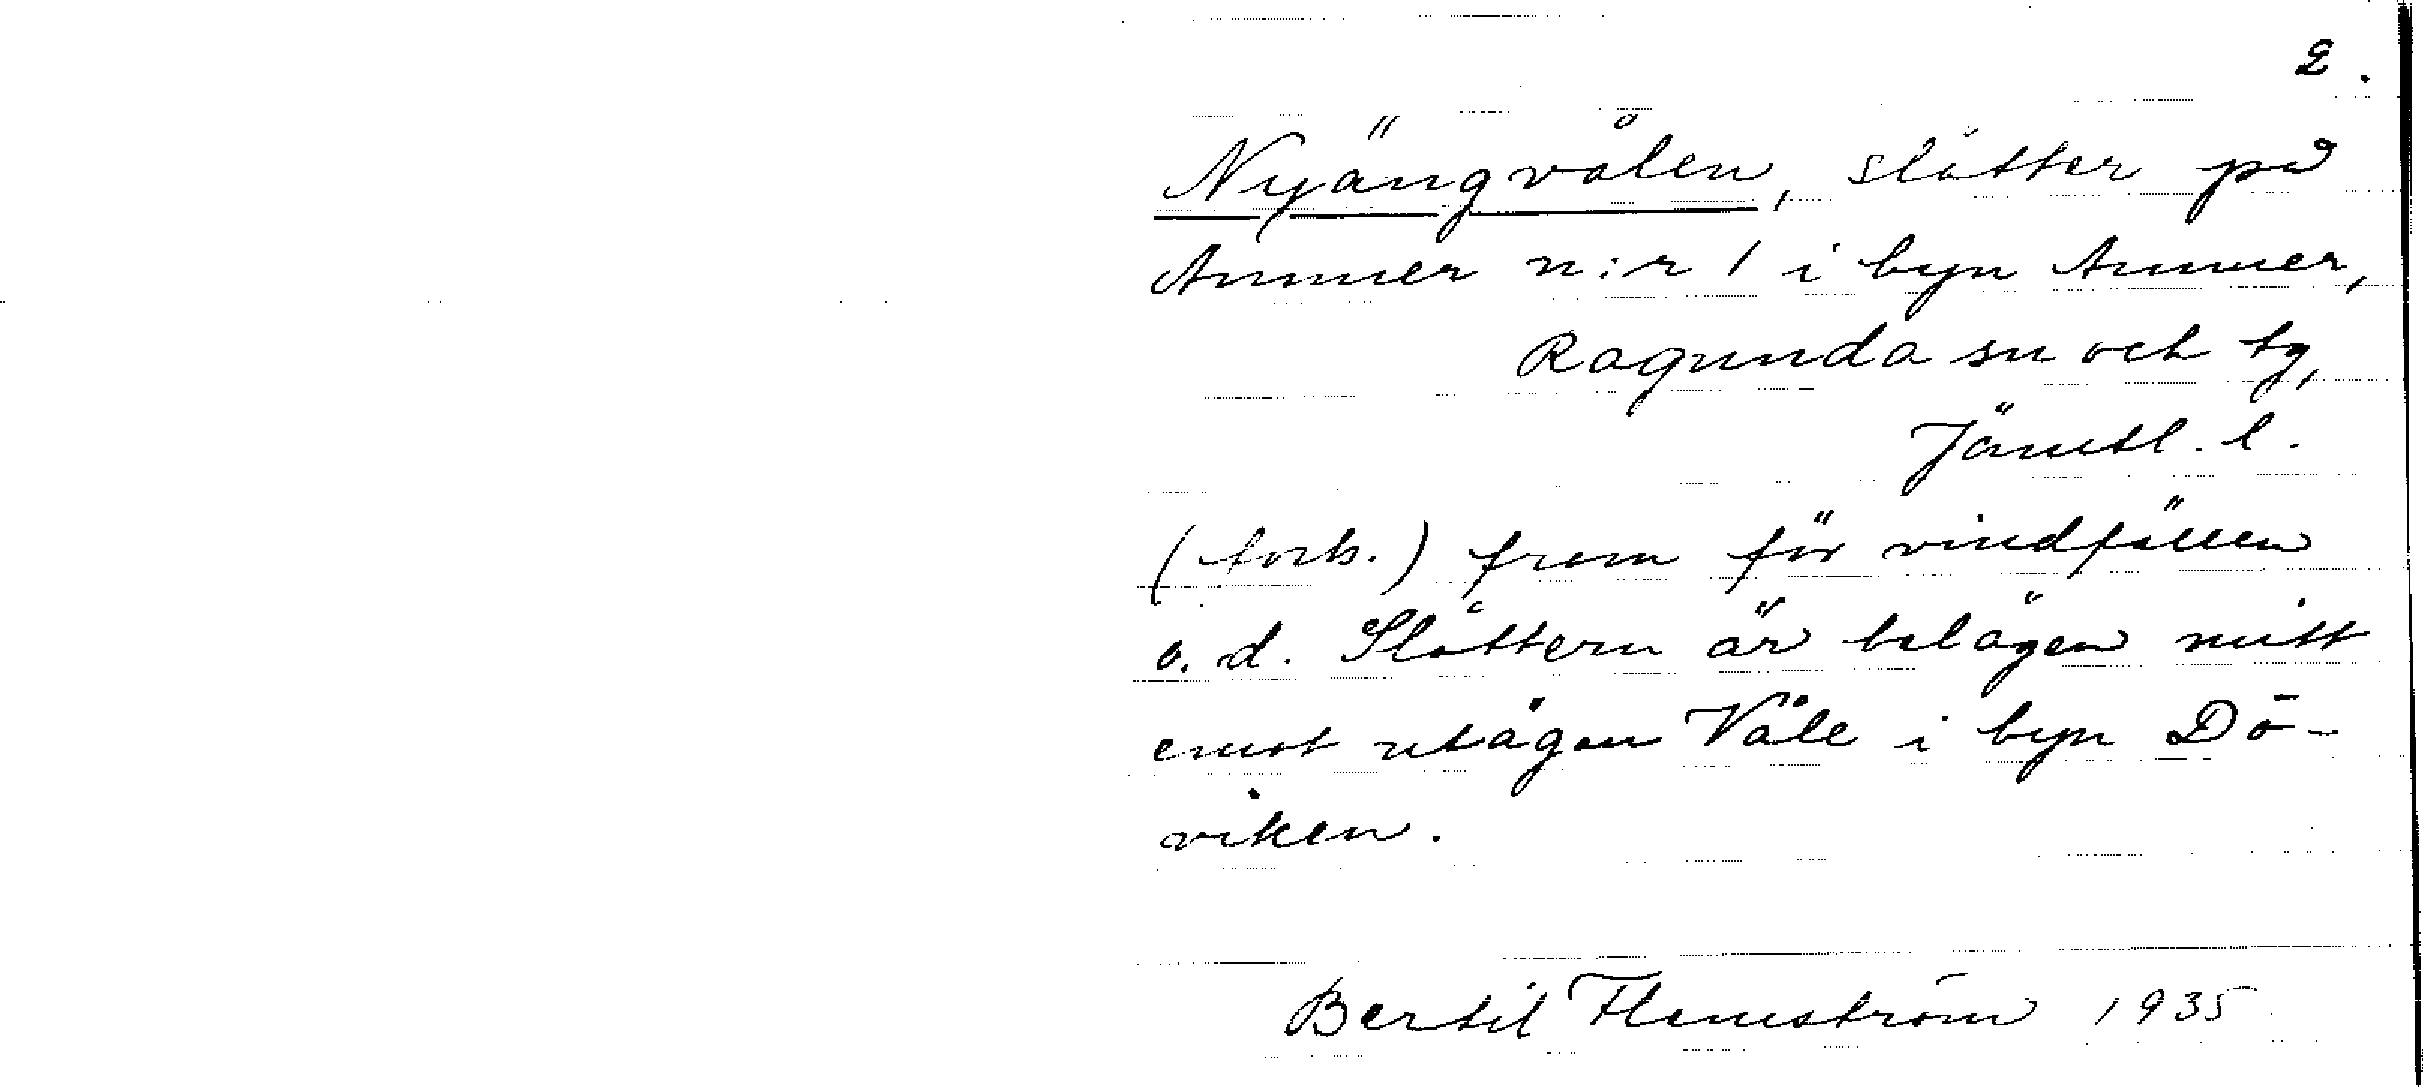 2.
Nyängvålen, slåtter på
Ammer n:r 1 i byn Ammer,
Ragunda sn och tg,
Jämtl. l.
(forts.) fram för vindfällen
o. d. Slåttern är belägen mitt
emot utägan Våle i byn Dö-
viken.
Bertil Flemström 1935